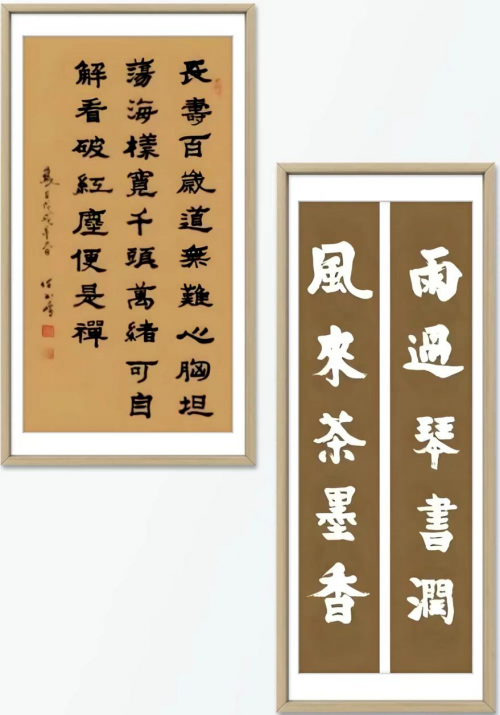 長壽百歲道無難心胸坦
蕩海樣寬千頭萬緒可自
解看破紅塵便是禪
雨過琴書潤
風來茶墨香